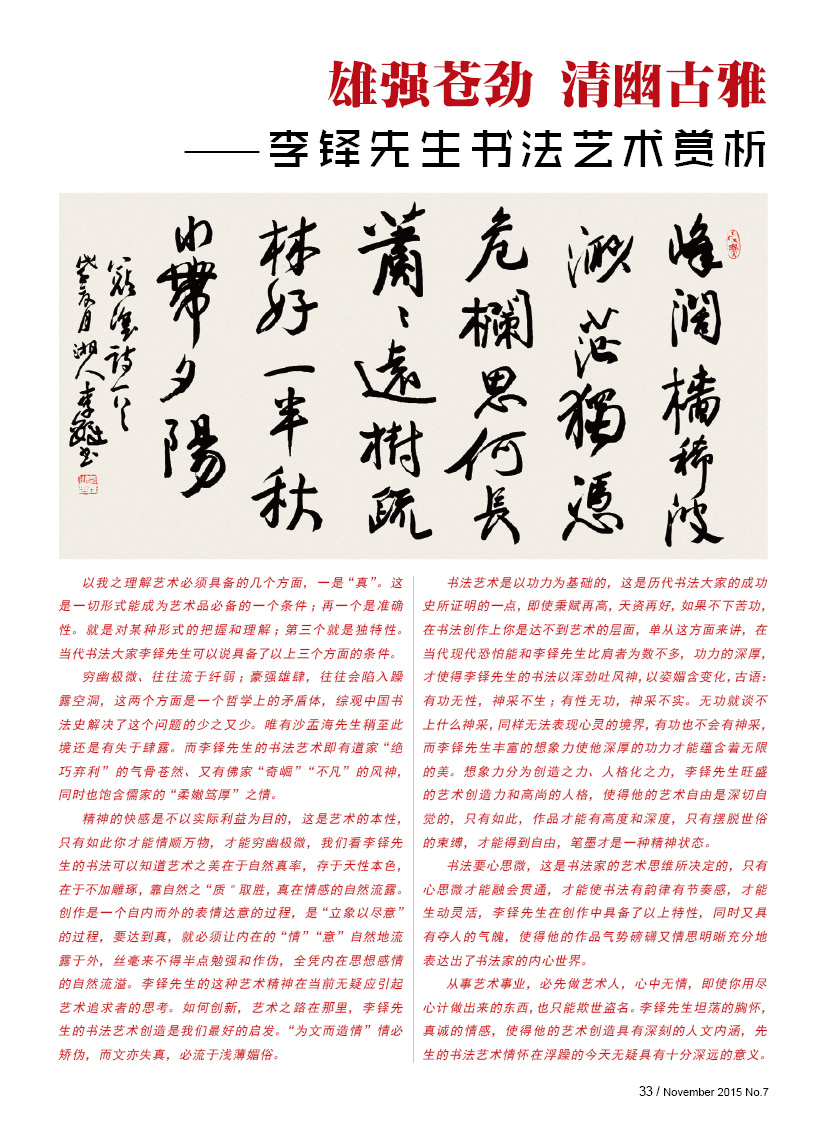 雄强苍劲 清幽古雅
——李铎先生书法艺术赏析
峰闊檣稀波
渺茫獨憑
危欄思何長
蕭〻遠樹疏
林好一半秋
山帶夕陽
詩一
月湘人李鐸书
以我之理解艺术必须具备的几个方面，一是“真”。这
是一切形式能成为艺术品必备的一个条件；再一个是准确
性。就是对某种形式的把握和理解；第三个就是独特性。
当代书法大家李铎先生可以说具备了以上三个方面的条件。
穷幽极微、往往流于纤弱；豪强雄肆，往往会陷入躁
露空洞，这两个方面是一个哲学上的矛盾体，综观中国书
法史解决了这个问题的少之又少。唯有沙孟海先生稍至此
境还是有失于肆露。而李铎先生的书法艺术即有道家“绝
巧弃利”的气骨苍然、又有佛家“奇崛”“不凡”的风神，
同时也饱含儒家的“柔嫩笃厚”之情。
精神的快感是不以实际利益为目的，这是艺术的本性，
只有如此你才能情顺万物，才能穷幽极微，我们看李铎先
生的书法可以知道艺术之美在于自然真率，存于天性本色，
在于不加雕琢，靠自然之“质”取胜，真在情感的自然流露。
创作是一个自内而外的表情达意的过程，是“立象以尽意”
的过程，要达到真，就必须让内在的“情”“意”自然地流
露于外，丝毫来不得半点勉强和作伪，全凭内在思想感情
的自然流溢。李铎先生的这种艺术精神在当前无疑应引起
艺术追求者的思考。如何创新，艺术之路在那里，李铎先
生的书法艺术创造是我们最好的启发。“为文而造情”情必
矫伪，而文亦失真，必流于浅薄媚俗。
书法艺术是以功力为基础的，这是历代书法大家的成功
史所证明的一点，即使秉赋再高，天资再好，如果不下苦功，
在书法创作上你是达不到艺术的层面，单从这方面来讲，在
当代现代恐怕能和李铎先生比肩者为数不多，功力的深厚，
才使得李铎先生的书法以浑劲吐风神，以姿媚含变化，古语：
有功无性，神采不生；有性无功，神采不实。无功就谈不
上什么神采，同样无法表现心灵的境界，有功也不会有神采，
而李铎先生丰富的想象力使他深厚的功力才能蕴含着无限
的美。想象力分为创造之力、人格化之力，李铎先生旺盛
的艺术创造力和高尚的人格，使得他的艺术自由是深切自
觉的，只有如此，作品才能有高度和深度，只有摆脱世俗
的束缚，才能得到自由，笔墨才是一种精神状态。
书法要心思微，这是书法家的艺术思维所决定的，只有
心思微才能融会贯通，才能使书法有韵律有节奏感，才能
生动灵活，李铎先生在创作中具备了以上特性，同时又具
有夺人的气魄，使得他的作品气势磅礴又情思明晰充分地
表达出了书法家的内心世界。
从事艺术事业，必先做艺术人，心中无情，即使你用尽
心计做出来的东西，也只能欺世盗名。李铎先生坦荡的胸怀，
真诚的情感，使得他的艺术创造具有深刻的人文内涵，先
生的书法艺术情怀在浮躁的今天无疑具有十分深远的意义。
33 / November 2015 No.7